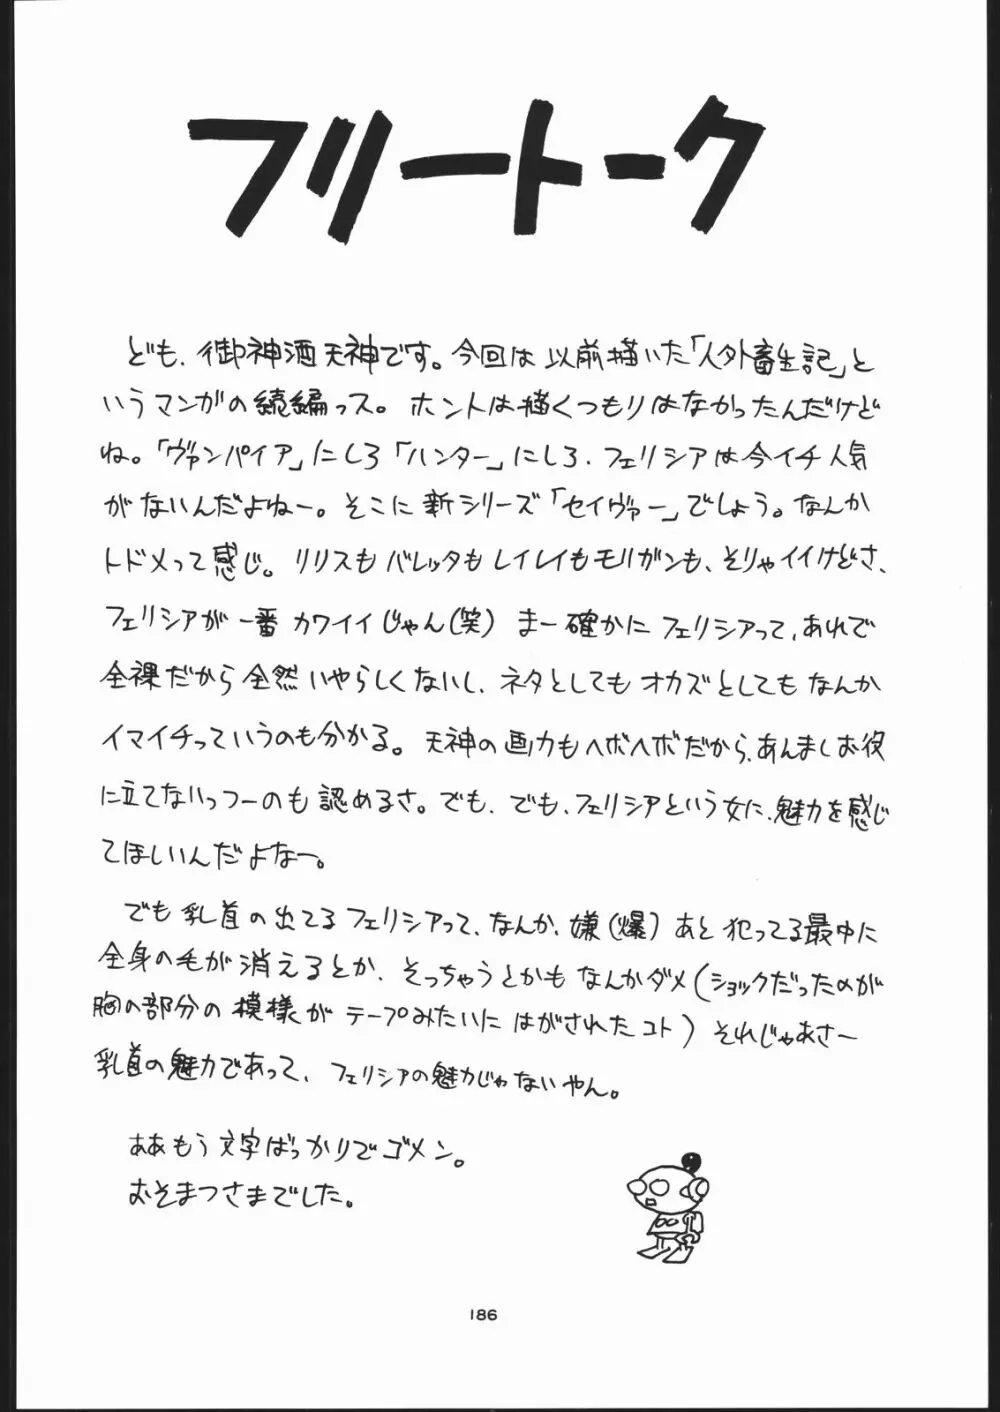 フリートーク
ども、御神酒天神です。今回は以前描いた「人外畜生記」と
いうマンガの続編っス。ホントは描くつもりはなかったんだけど
ね。「ヴァンパイア」にしろ「ハンター」にしろ、フェリシアは今イチ人気
がないんだよねー。そこに新シリーズ「セイヴァー」でしょう。なんか
トドメって感じ。リリスもバレッタもレイレイもモリガンも、そりゃイイけどさ、
フェリシアが一番カワイイじゃん(笑) まー確かにフェリシアって、あれで
全裸だから全然いやらしくないし、ネタとしてもオカズとしてもなんか
イマイチっていうのも分かる。天神の画力もヘボヘボだから、あんましお役
に立てないっつーのも認めるさ。でも、でも、フェリシアという女に、魅力を感じ
てほしいんだよなー。
でも乳首の出てるフェリシアって、なんか、嫌(爆) あと犯ってる最中に
全身の毛が消えるとか、そっちゅうとかもなんかダメ(ショックだったのが
胸の部分の模様がテープみたいにはがされたコト) それじゃあさー
乳首の魅力であって、フェリシアの魅力じゃないやん。
ああもう文字ばっかりでゴメン。
おそまつさまでした。
186